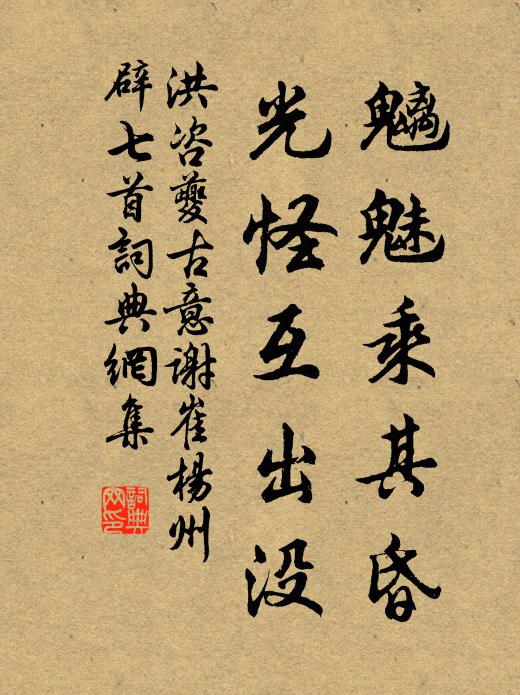 魑魅乘其昏
光怪互出没
洪咨夔古意謝崔楊州
辟七首詞典網集
詞典
网印